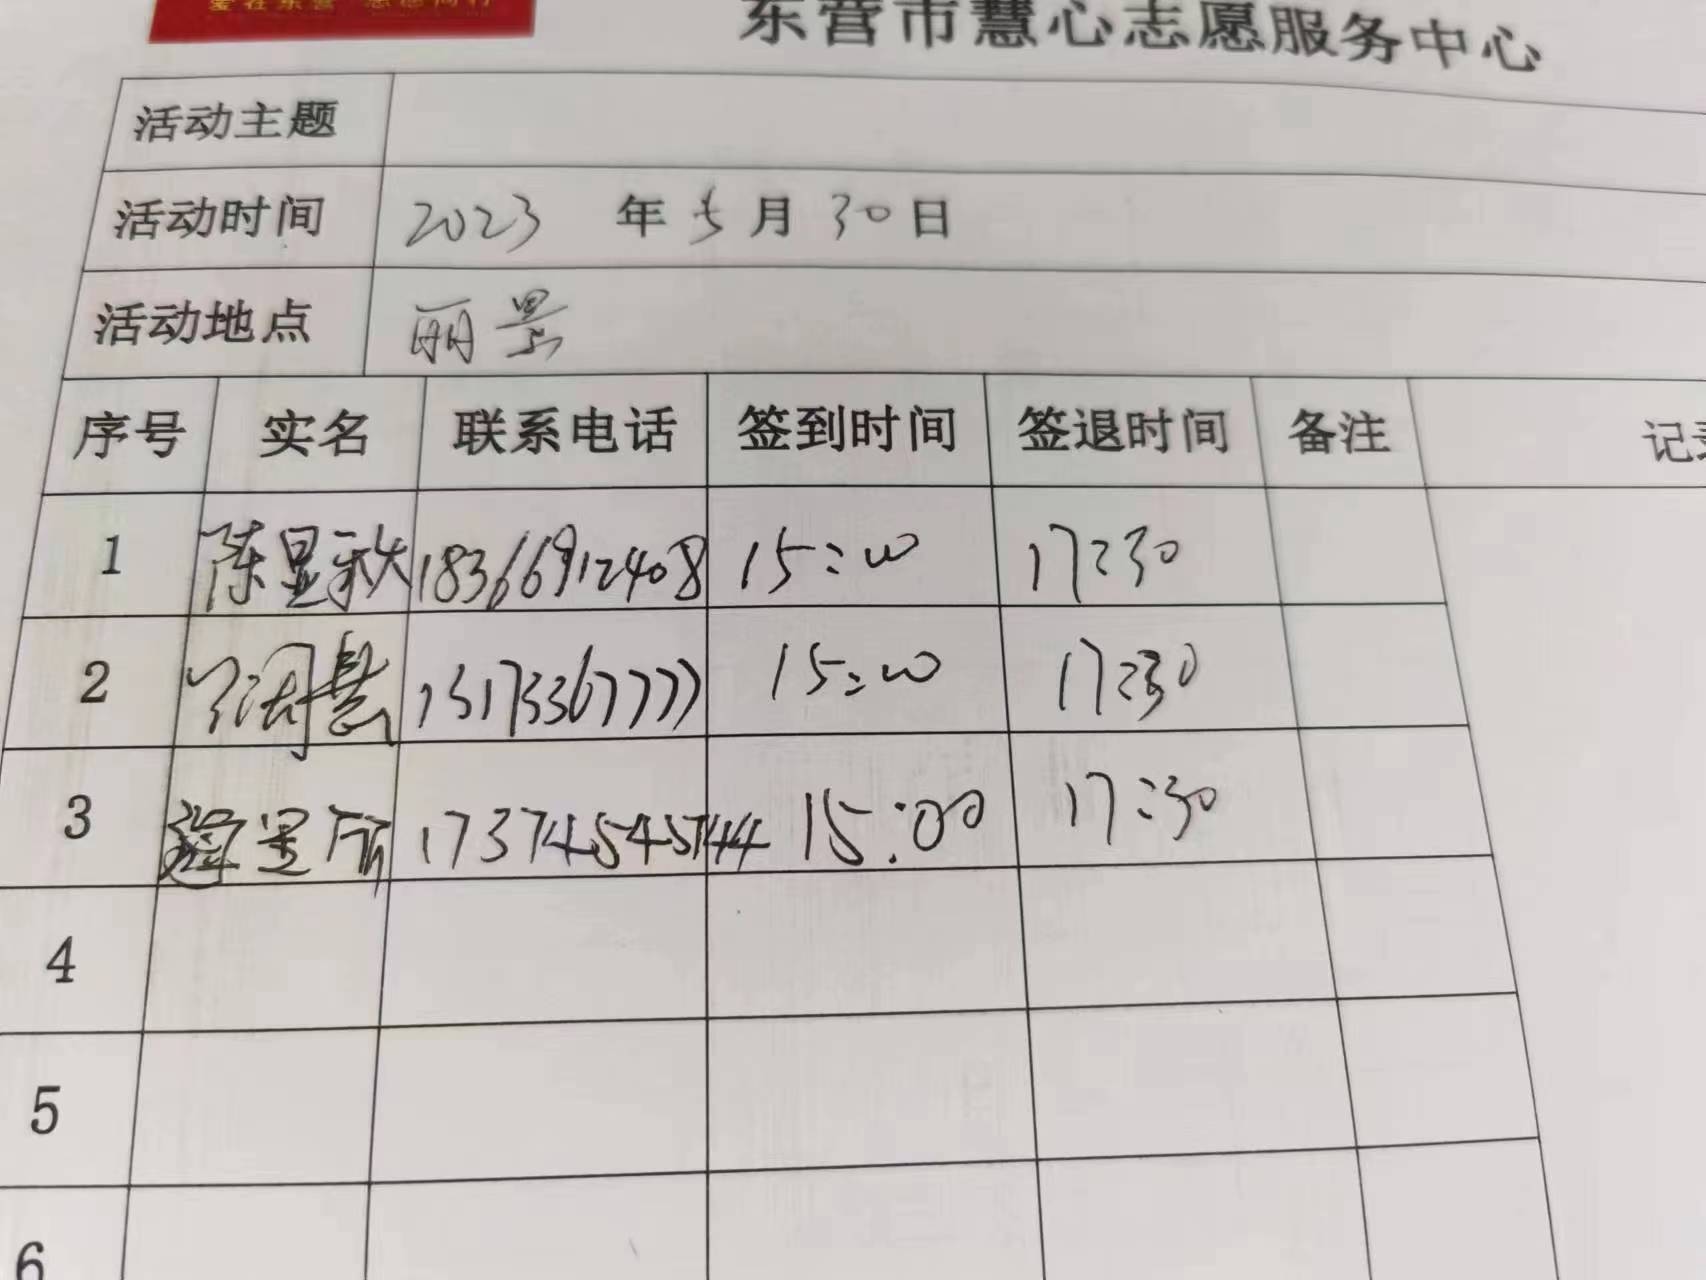 爱在东营 志愿同行
东营市慧心志愿服务中心
活动主题
活动时间 2023 年 5 月 30 日
活动地点 丽景
序号 实名 联系电话 签到时间 签退时间 备注 记
1 陈显秋 18366912408 15:00 17:30
2 13173367777 15:00 17:30
3 17374545744 15:00 17:30
4
5
6